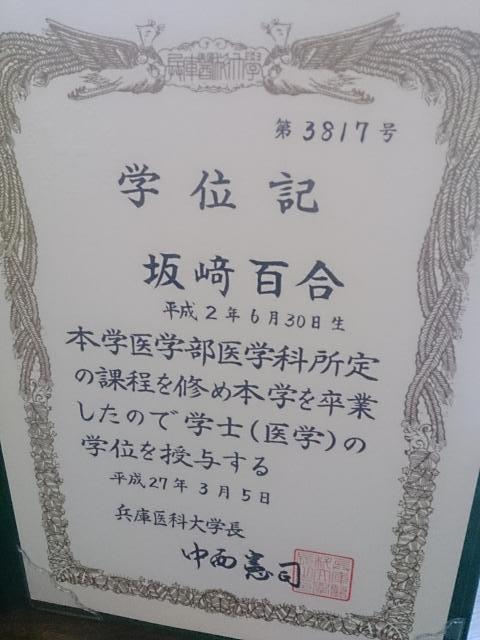 兵庫醫科大學
第3817号
学位記
坂﨑百合
平成2年6月30日生
本学医学部医学科所定
の課程を修め本学を卒業
したので学士(医学)の
学位を授与する
平成27年3月5日
兵庫医科大学長
中西憲司